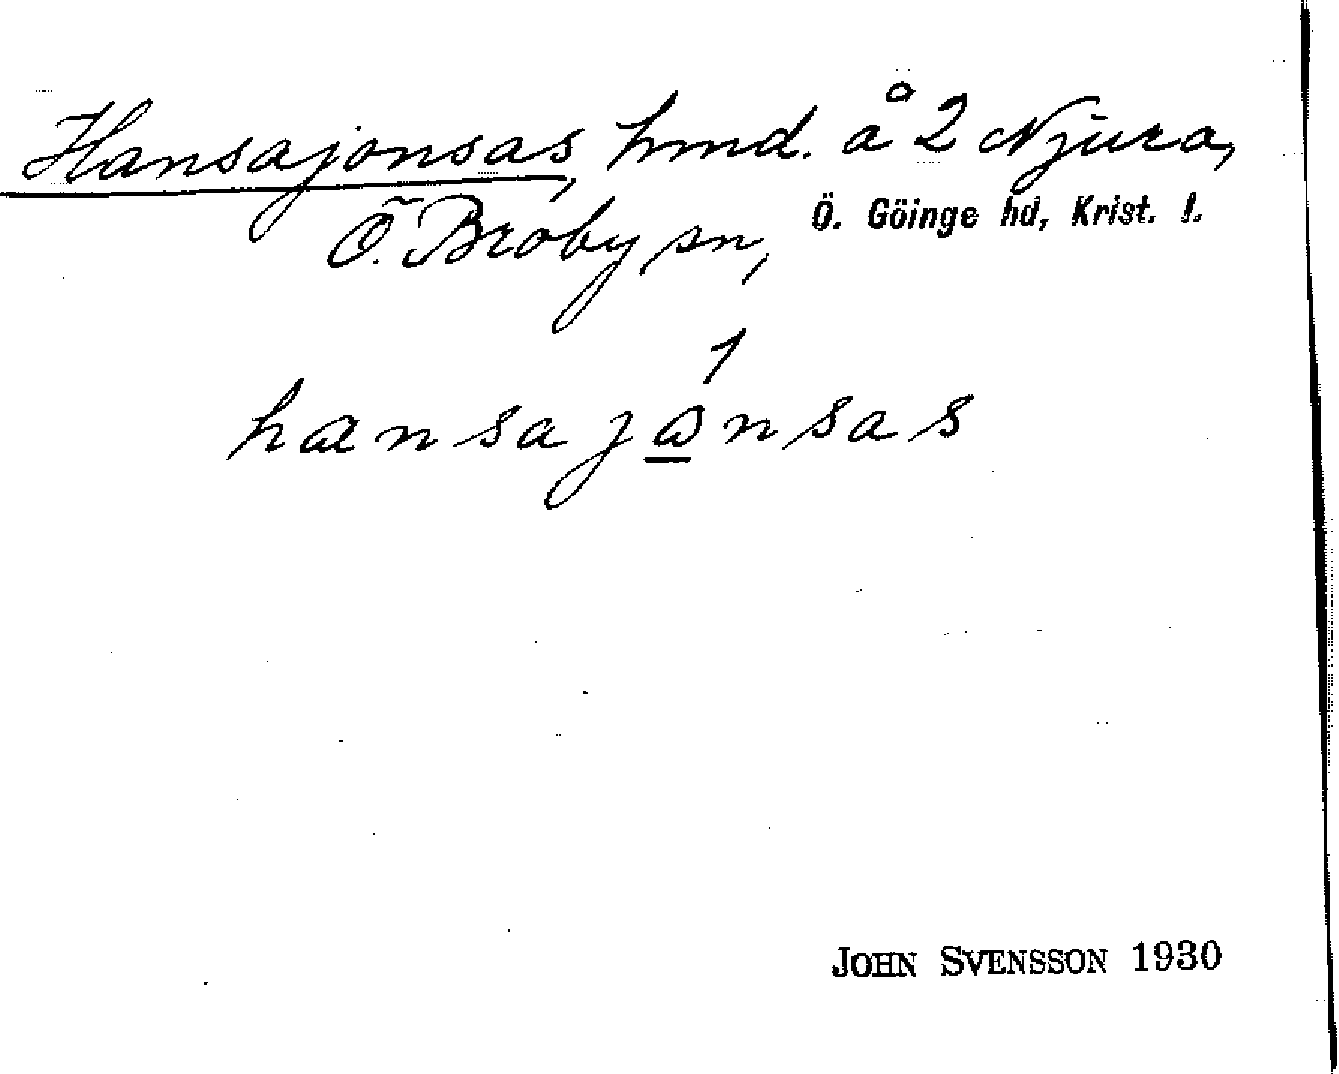 Hansajonsas, hmd. å 2 Njura,
Ö. Broby sn, Ö. Göinge hd, Krist. l.
1
hansajånsas
JOHN SVENSSON 1930